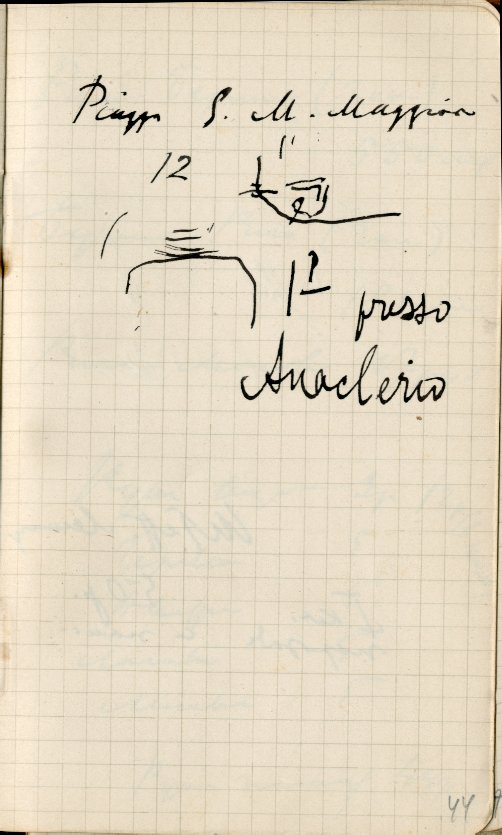 Piazza S. M. Maggiore
12
1º presso
Anaclerico
44